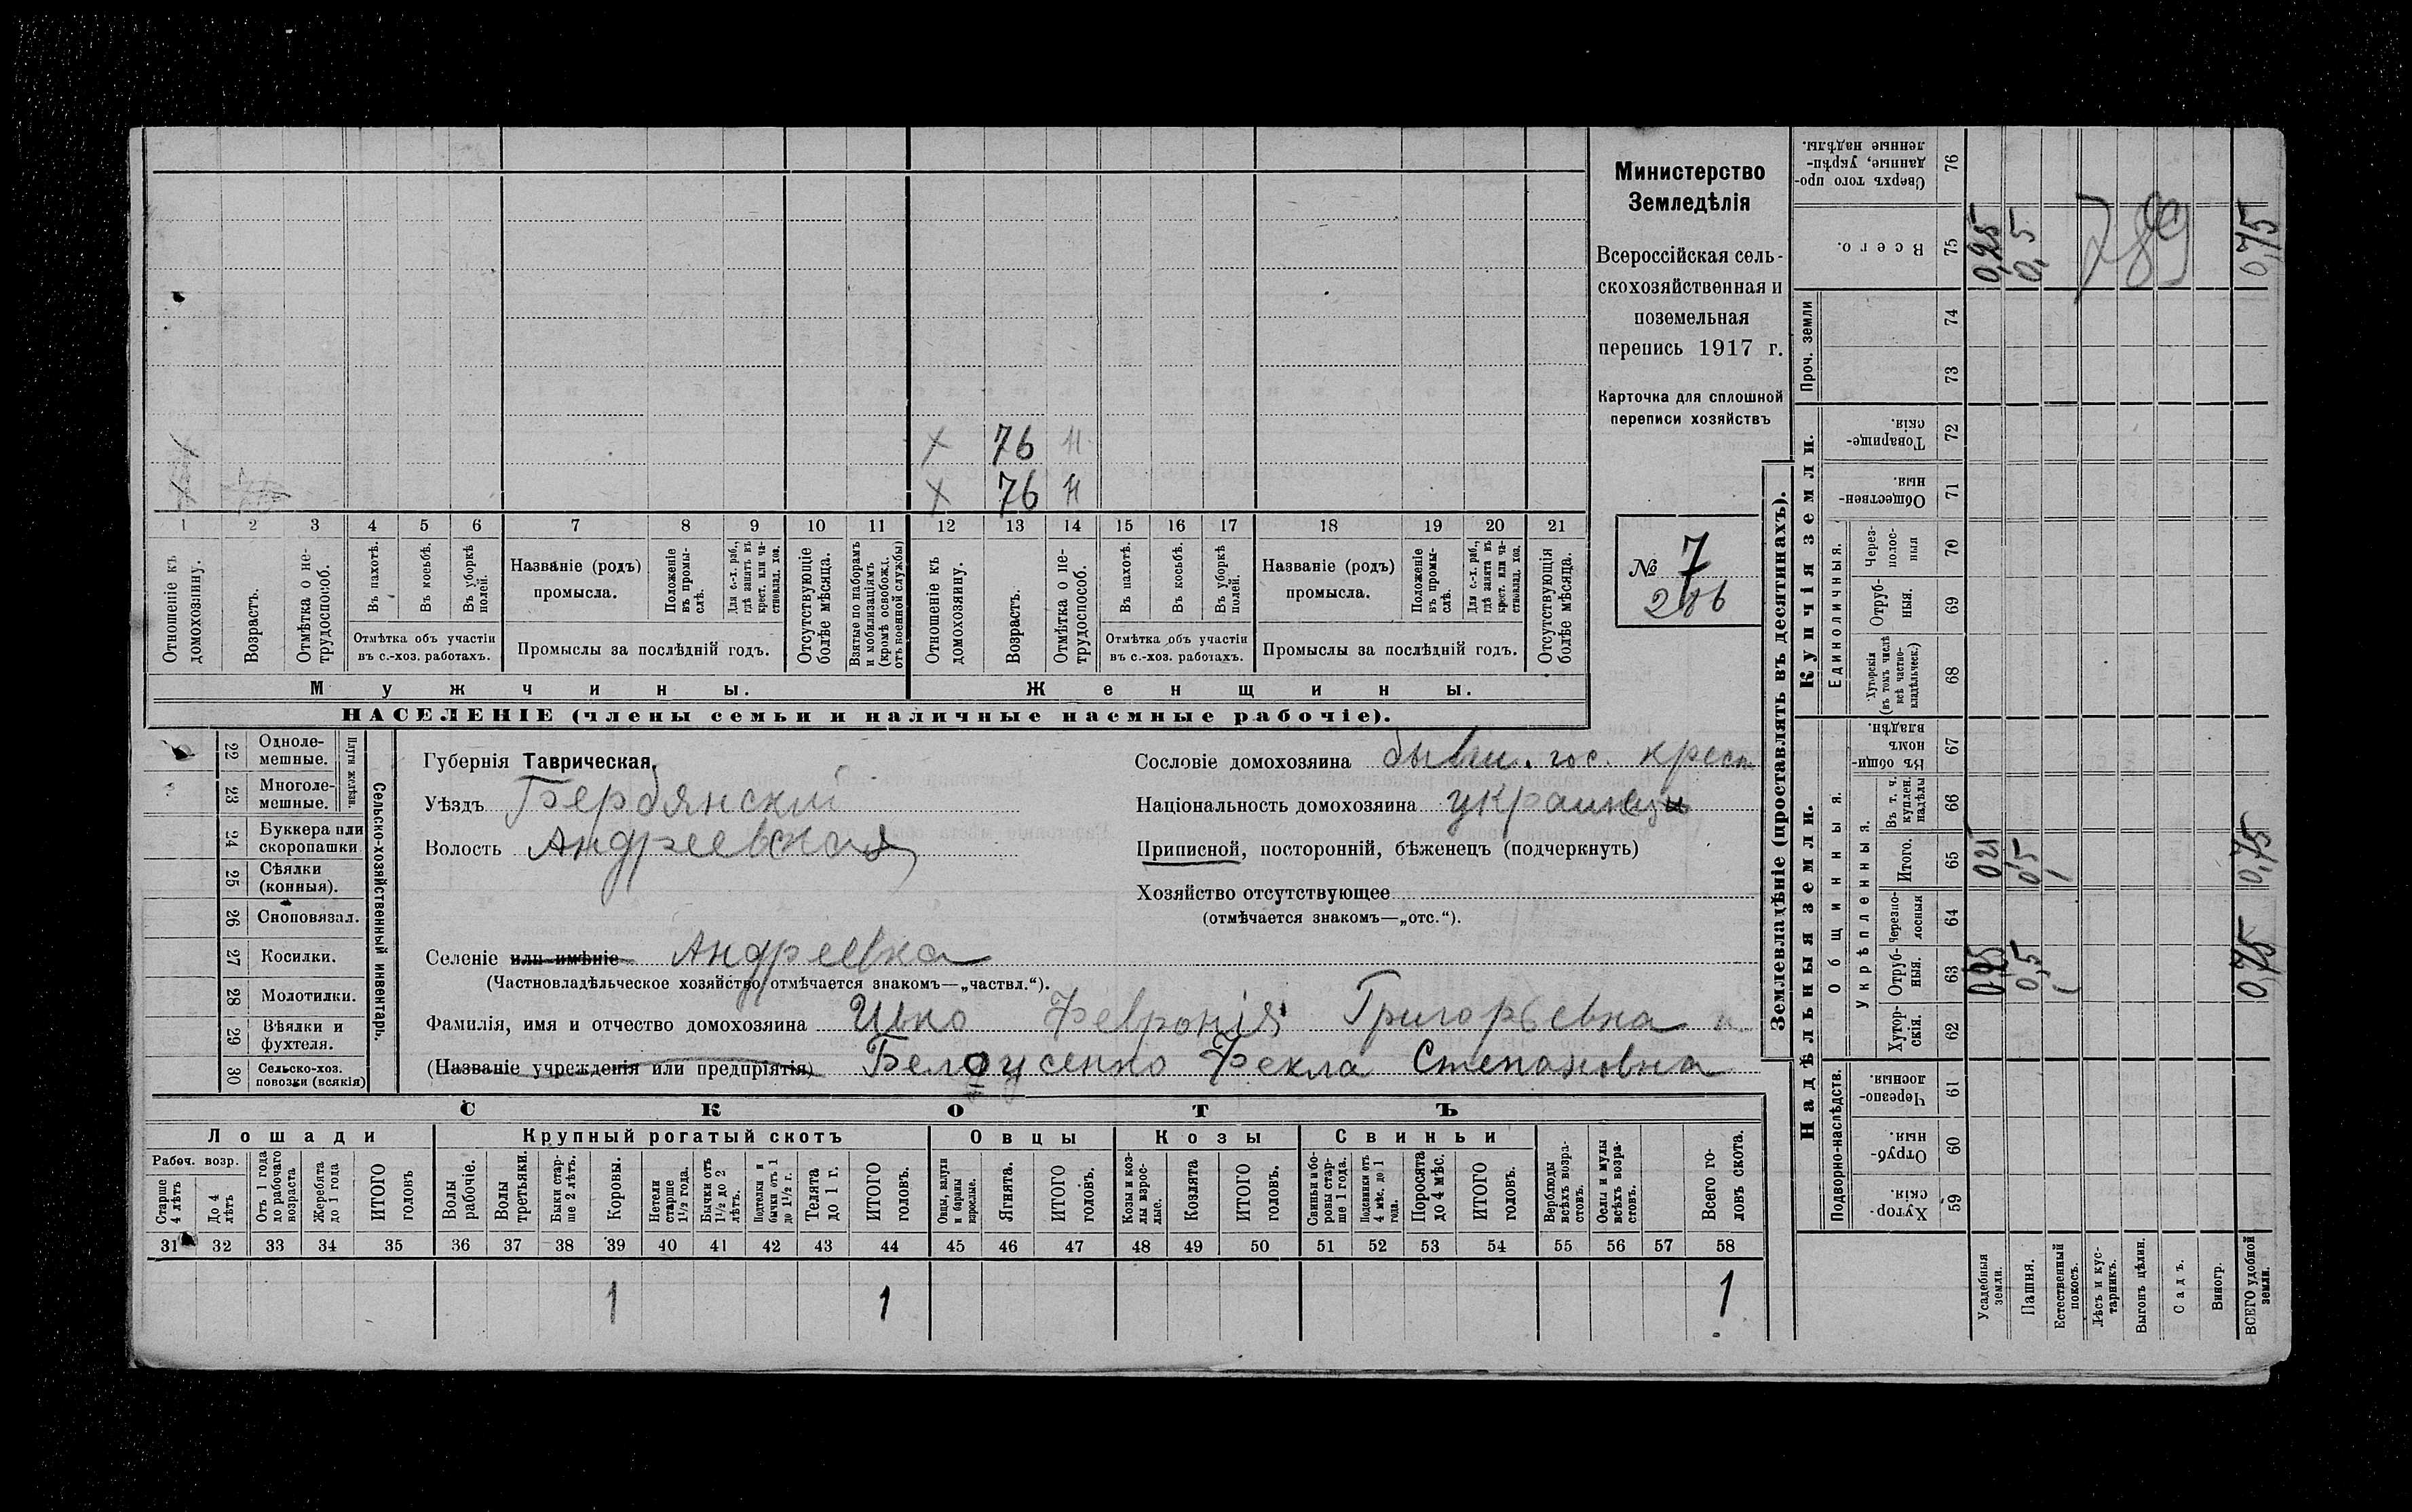 Министерство
Земледѣлія
Всероссійская сель-
скохозяйственная и
поземельная
перепись 1917 г.
Карточка для сплошной
переписи хозяйствъ
№ 7
206
× 76 н
× 76 н
1 2 3 4 5 6 7 8 9 10 11 12 13 14 15 16 17 18 19 20 21
Отношеніе къ домохозяину.
Возрастъ.
Отмѣтка о не-трудоспособ.
Въ пахотѣ.
Въ косьбѣ.
Въ уборкѣ полей.
Отмѣтка объ участіи
въ с.-хоз. работахъ.
Названіе (родъ)
промысла.
Положеніе въ промы-слѣ.
Для с.-х. раб., гдѣ занятъ въ крест. или ча-стновлад. хоз.
Промыслы за послѣдній годъ.
Отсутствующіе болѣе мѣсяца.
Взятые по наборамъ и мобилизаціямъ (кромѣ освобожд. отъ военной службы)
Отношеніе къ домохозяину.
Возрастъ.
Отмѣтка о не-трудоспособ.
Въ пахотѣ.
Въ косьбѣ.
Въ уборкѣ полей.
Отмѣтка объ участіи
въ с.-хоз. работахъ.
Названіе (родъ)
промысла.
Положеніе въ промы-слѣ.
Для с.-х. раб., гдѣ занята въ крест. или ча-стновлад. хоз.
Промыслы за послѣдній годъ.
Отсутствующія болѣе мѣсяца.
Мужчины.
Женщины.
НАСЕЛЕНІЕ (члены семьи и наличные наемные рабочіе).
Сельско-хозяйственный инвентарь.
Плуги желѣзн.
22 Одноле-мешные.
23 Многоле-мешные.
24 Буккера или скоропашки
25 Сѣялки (конныя).
26 Сноповязал.
27 Косилки.
28 Молотилки.
29 Вѣялки и фухтеля.
30 Сельско-хоз. повозки (всякія)
Губернія Таврическая.
Уѣздъ Бердянскій
Волость Андреевская
Сословіе домохозяина бывш. гос. крест
Національность домохозяина украинцы
Приписной, посторонній, бѣженецъ (подчеркнуть)
Хозяйство отсутствующее
(отмѣчается знакомъ—„отс.“).
Селеніе или имѣніе Андреевка
(Частновладѣльческое хозяйство отмѣчается знакомъ—„частвл.“).
Фамилія, имя и отчество домохозяина Февронія Григорьевна и
(Названіе учрежденія или предпріятія) Белоусенко Фекла Степановна
СКОТЪ
Лошади
Крупный рогатый скотъ
Овцы
Козы
Свиньи
Рабоч. возр.
Старше 4 лѣтъ
До 4 лѣтъ
Отъ 1 года до рабочаго возраста
Жеребята до 1 года
ИТОГО головъ
Волы рабочіе.
Волы третьяки.
Быки стар-ше 2 лѣтъ.
Коровы.
Нетели старше 1½ года.
Бычки отъ 1½ до 2 лѣтъ.
Подтелки и бычки отъ 1 до 1½ г.
Телята до 1 г.
ИТОГО головъ.
Овцы, валухи и бараны взрослые.
Ягнята.
ИТОГО головъ.
Козы и коз-лы взрос-лые.
Козлята
ИТОГО головъ.
Свиньи и бо-ровы стар-ше 1 года.
Подсвинки отъ 4 мѣс. до 1 года.
Поросята до 4 мѣс.
ИТОГО головъ.
Верблюды всѣхъ возра-стовъ.
Ослы и мулы всѣхъ возра-стовъ.
Всего го-ловъ скота.
31 32 33 34 35 36 37 38 39 40 41 42 43 44 45 46 47 48 49 50 51 52 53 54 55 56 57 58
1 1 1
Землевладѣніе (проставлять въ десятинахъ).
Надѣльныя земли.
Купчія земли.
Проч. земли
Подворно-наслѣдств.
Общинныя.
Укрѣпленныя.
Единоличныя.
Хутор-скія. 59
Отруб-ныя. 60
Черезпо-лосныя. 61
Хутор-скія. 62
Отруб-ныя. 63
Черезпо-лосныя 64
Итого. 65
Въ т. ч. куплен. надѣлы 66
Въ общин-номъ владѣн. 67
Хуторскія (въ томъ числѣ всѣ частно-владѣльческ.) 68
Отруб-ныя. 69
Через-полос-ныя 70
Обществен-ныя. 71
Товарище-скія. 72
73
74
Всего. 75
Сверхъ того про-данные, укрѣп-ленные надѣлы. 76
Усадебныя земли. 0,25 0,25 0,25
Пашня. 0,5 0,5 0,5
Естественный покосъ.
Лѣсъ и кус-тарникъ.
Выгонъ цѣлин.
Садъ.
Виногр.
ВСЕГО удобной земли. 0,75 0,75 0,75
789